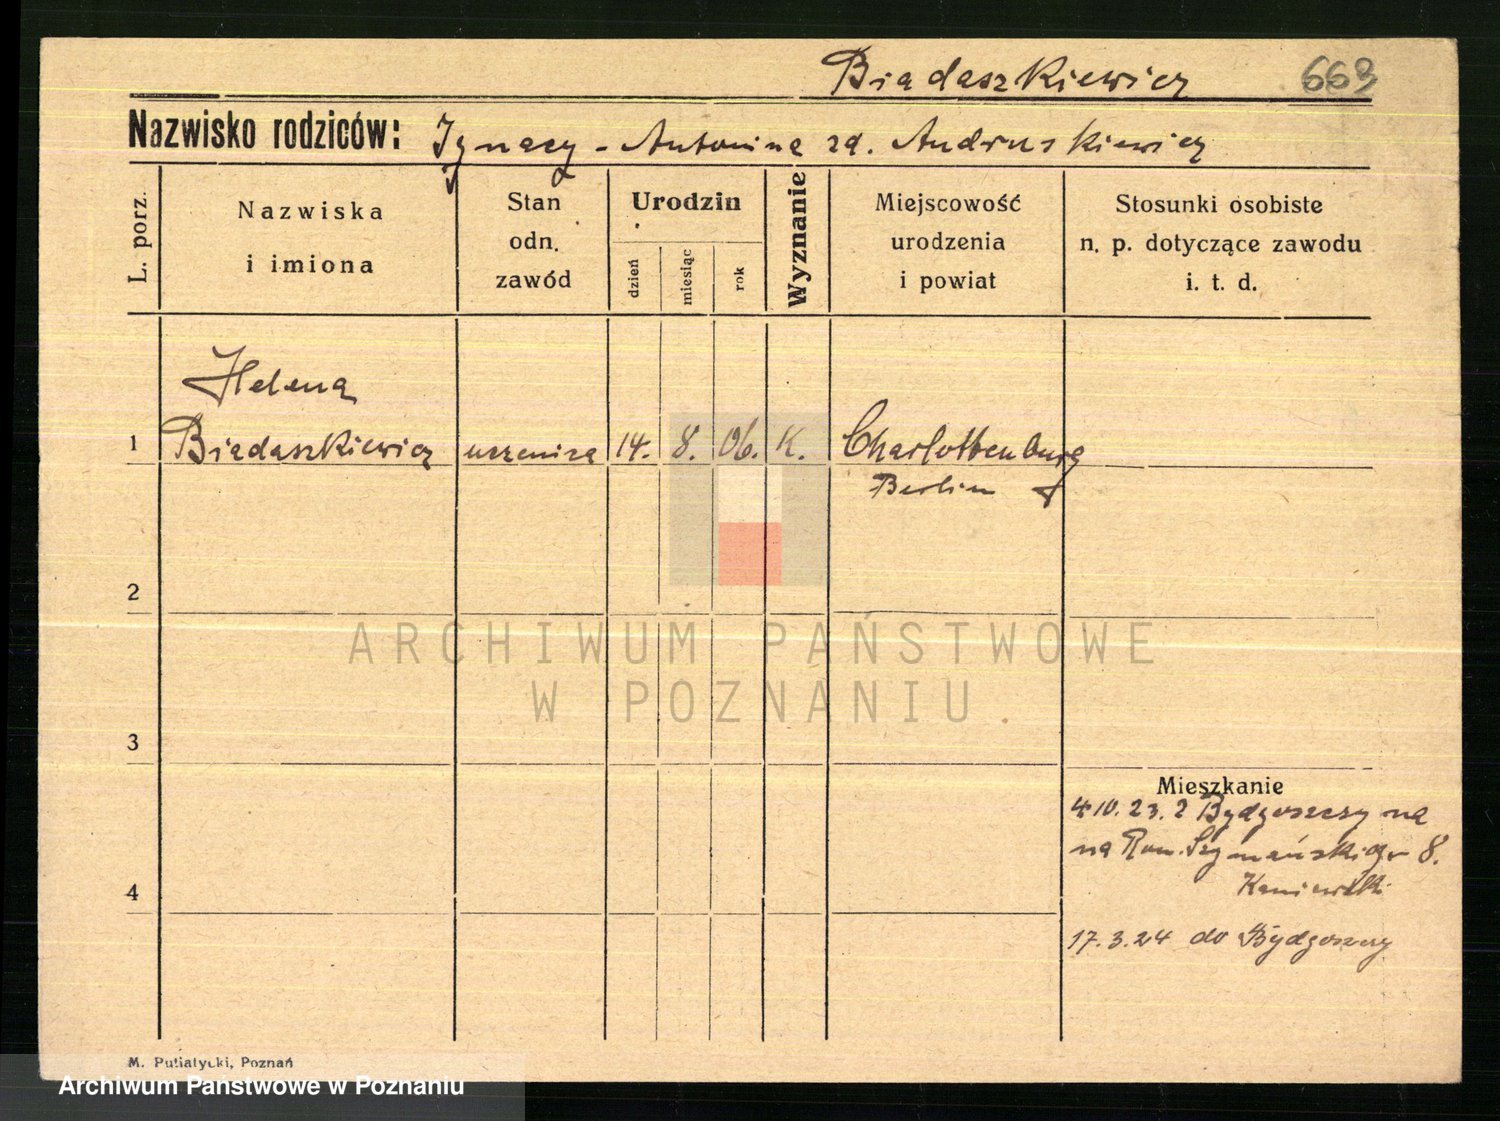 Biadaszkiewicz 669
Nazwisko rodziców: Ignacy - Antonina zd. Andruszkiewicz
L. porz.
Nazwiska
i imiona
Stan
odn.
zawód
Urodzin
dzień
miesiąc
rok
Wyznanie
Miejscowość
urodzenia
i powiat
Stosunki osobiste
n. p. dotyczące zawodu
i. t. d.
Helena
1 Biadaszkiewicz uczenica 14. 8. 06. K. Charlottenburg
Berlin
2
ARCHIWUM PAŃSTWOWE
W POZNANIU
3
Mieszkanie
4.10.23. z Bydgoszczy na
na Rom. Szymańskiego 8.
4
17.3.24 do Bydgoszczy
M. Putiatycki, Poznań
Archiwum Państwowe w Poznaniu